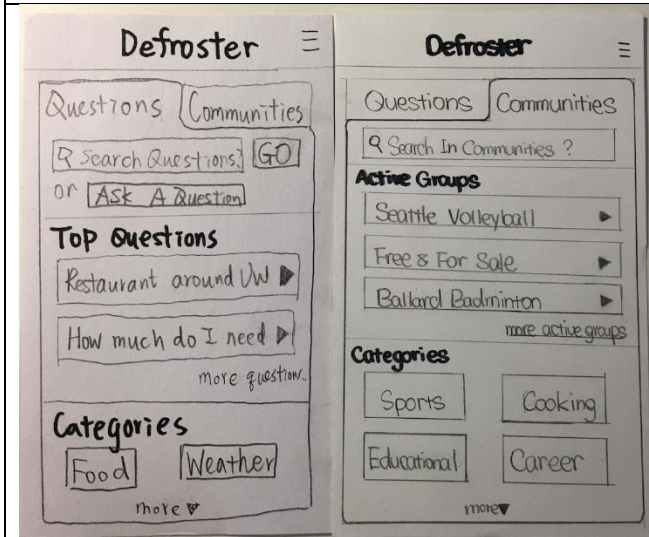 Defroster
Questions Communities
Search Questions? GO
or Ask A Question
Top Questions
Restaurant around UW
How much do I need
more question..
Categories
Food Weather
more
Defroster
Questions Communities
Search In Communities ?
Active Groups
Seattle Volleyball
Free & For Sale
Ballard Badminton
more active groups
Categories
Sports Cooking
Educational Career
more